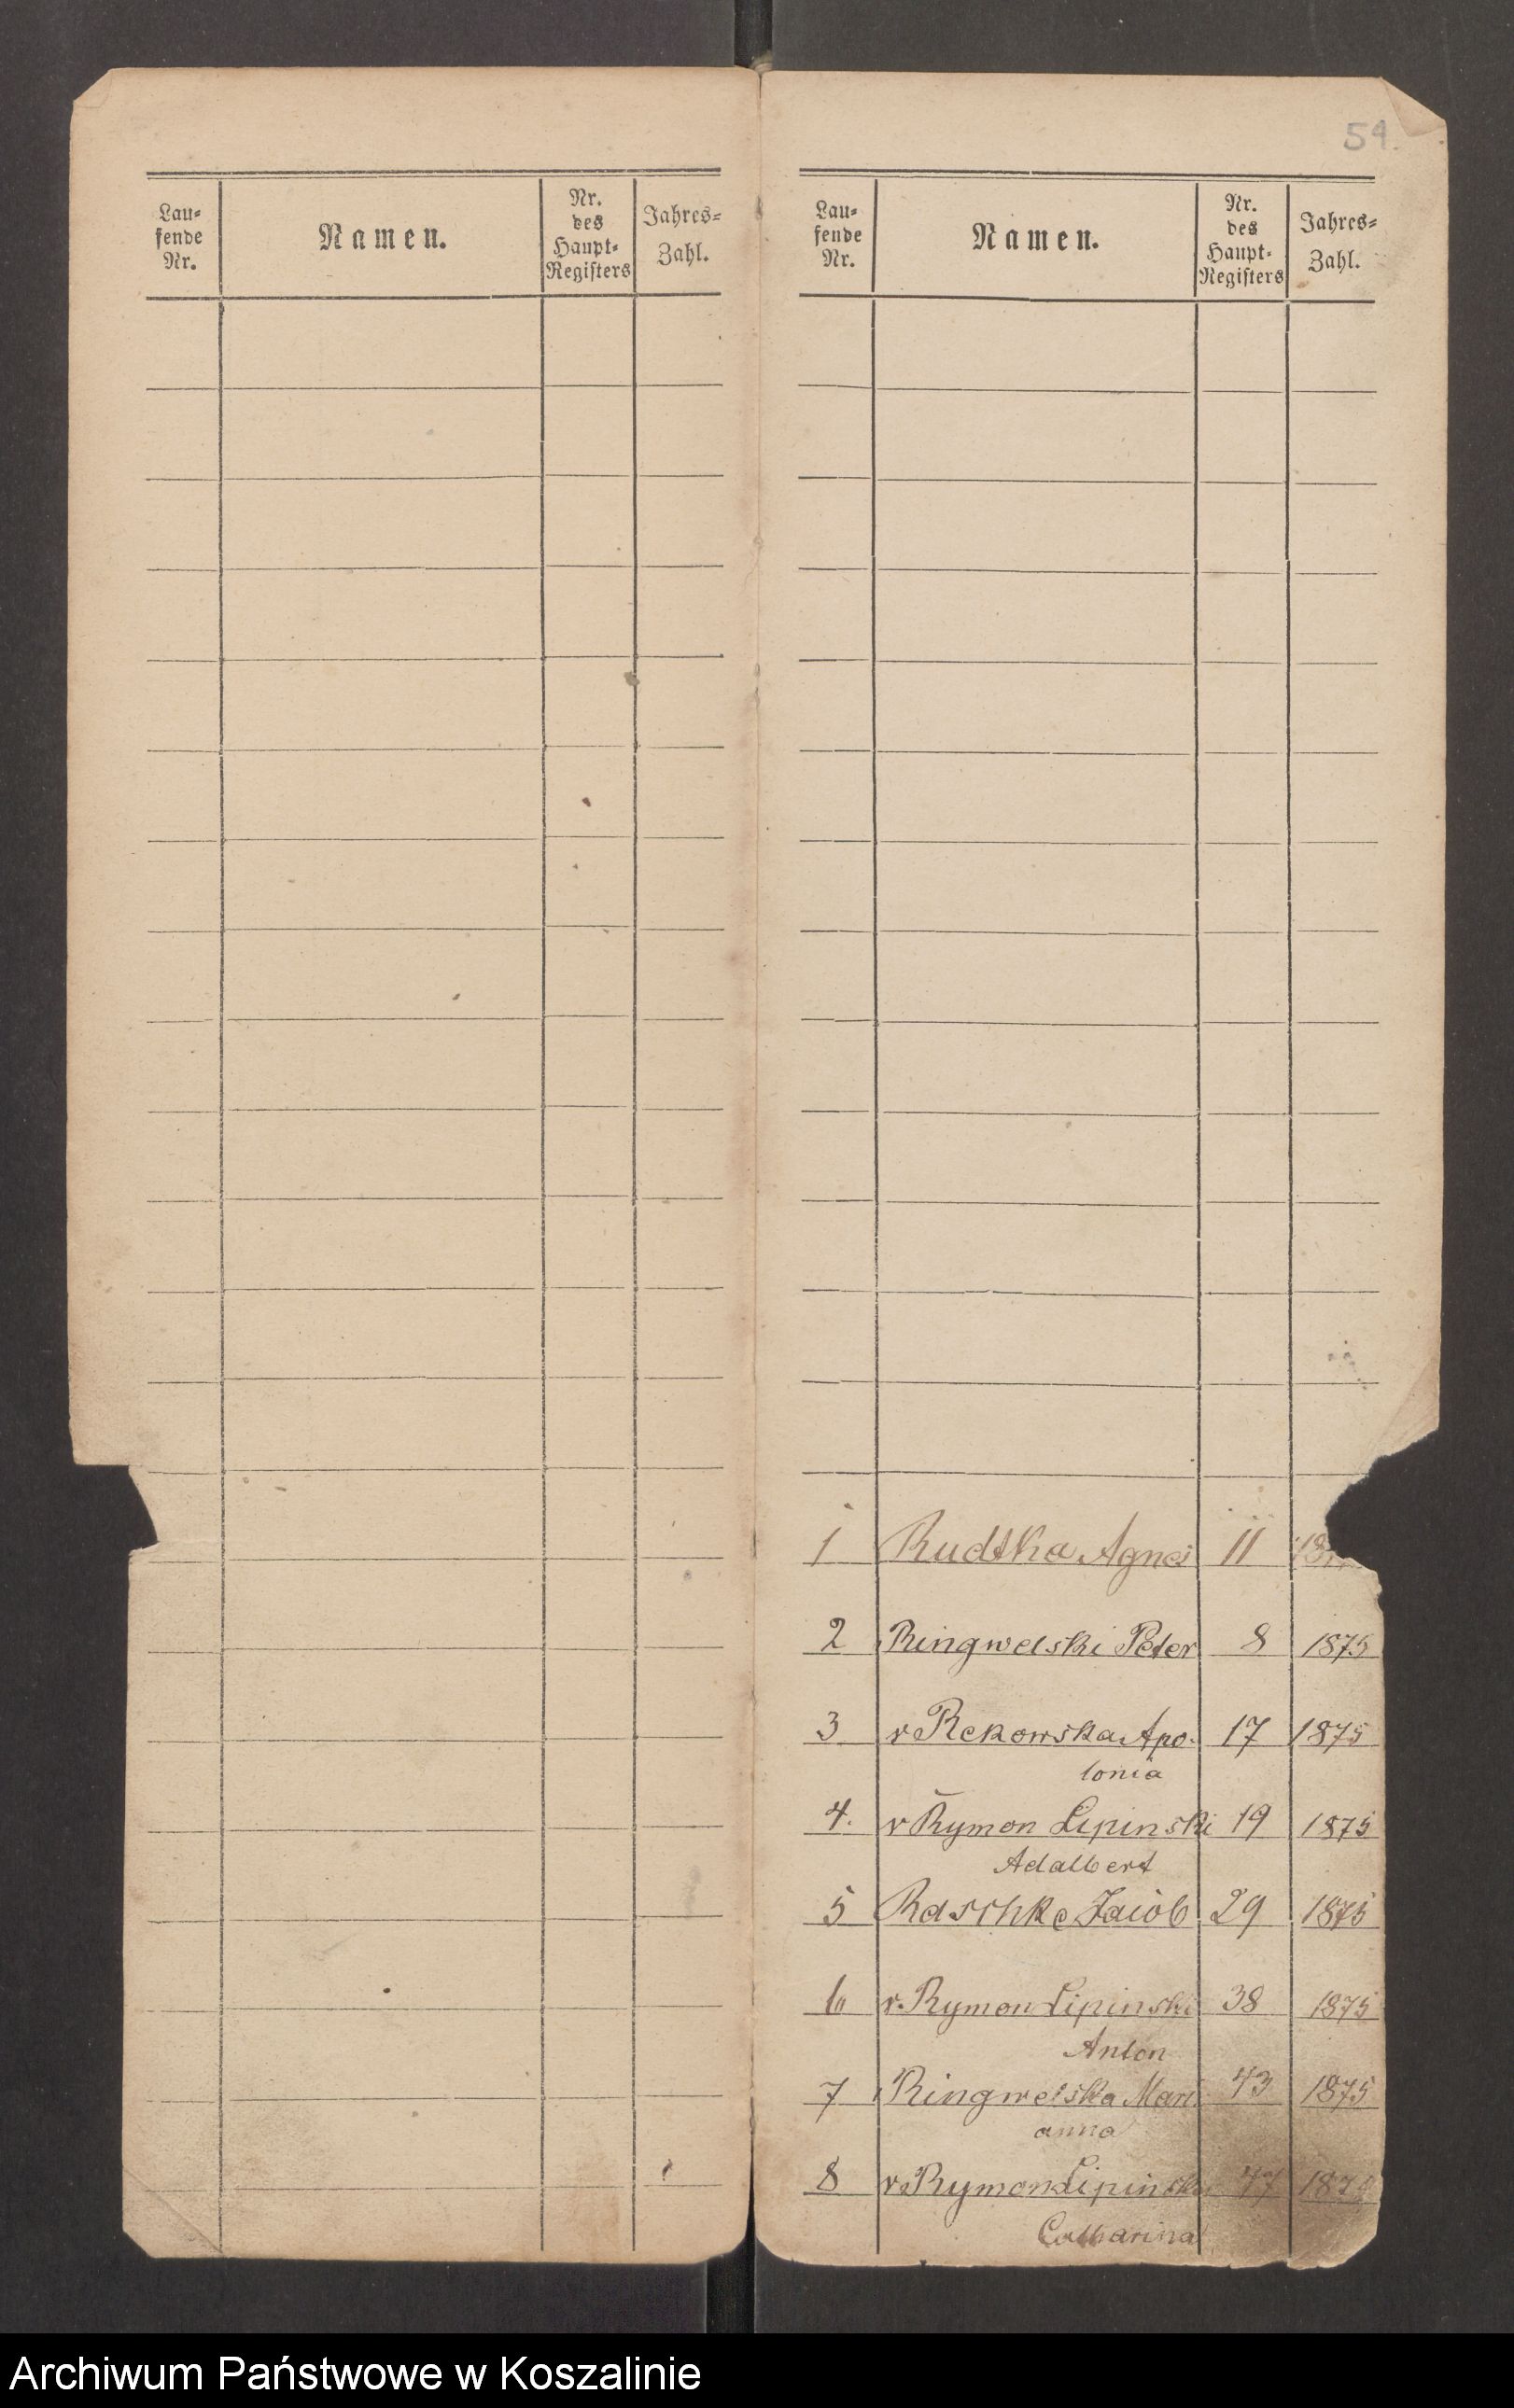 54.
Lau=
fende
Nr.
Namen.
Nr.
des
Haupt=
Registers
Jahres=
Zahl.
Lau=
fende
Nr.
Namen.
Nr.
des
Haupt=
Registers
Jahres=
Zahl.
1 Rudtka Agnes 11
2 Ringwelski Peter 8 1875
3 v Rekowska Apo- 17 1875
lonia
4. v Rymon Lipinski 19 1875
Adalbert
5 Raschke Jacob 29 1875
6 v. Rymon Lipinski 38 1875
Anton
7 Ringwelska Mari 43 1875
anna
8 v Rymon Lipinski 1875
Catharina
Archiwum Państwowe w Koszalinie